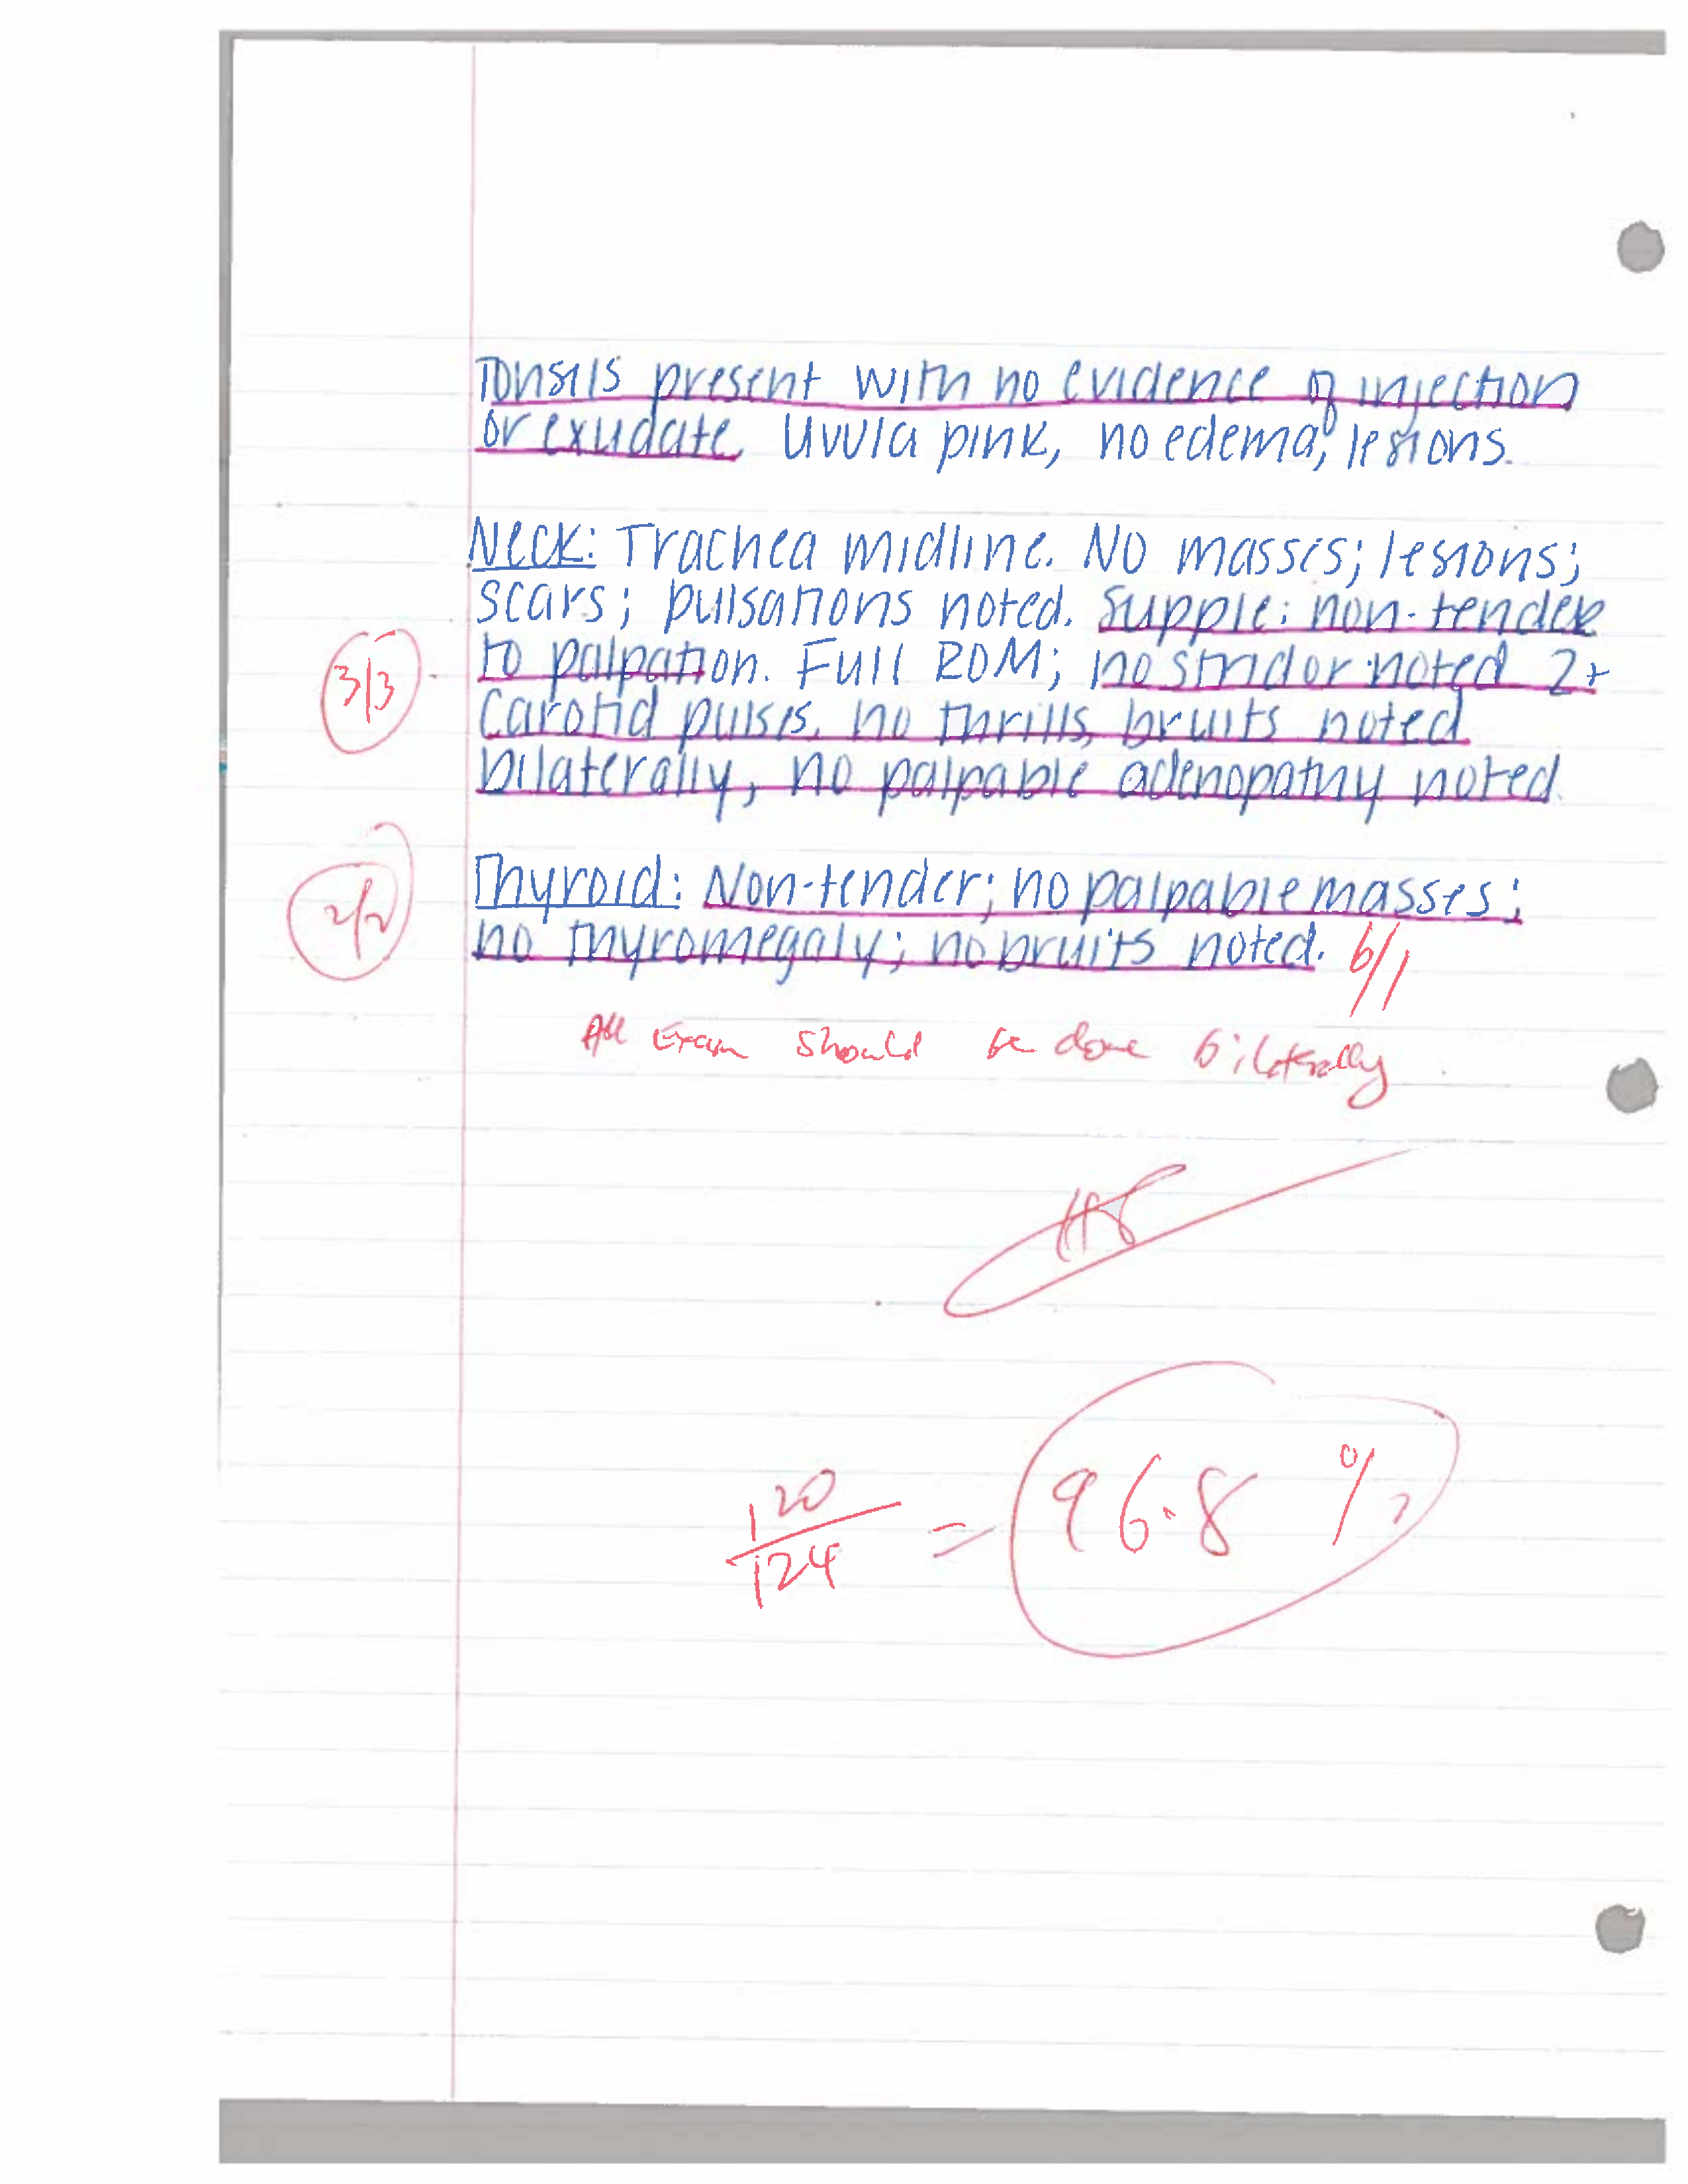 Tonsils present with no evidence of injection
or exudate. Uvula pink, no edema, lesions.
Neck: Trachea midline. No masses; lesions;
scars; pulsations noted. Supple; non-tender
to palpation. Full ROM; no stridor noted 2+
3/3
carotid pulses, no thrills, bruits noted
bilaterally, no palpable adenopathy noted.
Thyroid: Non-tender; no palpable masses;
2/2
no thyromegaly; no bruits noted. b/l
All Exam should be done bilaterally
120
124
= 96.8 %